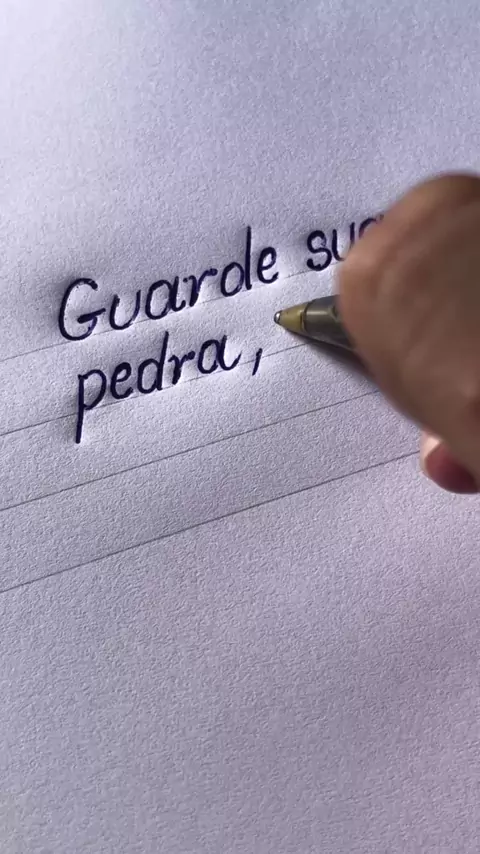 Guarde sua
pedra,